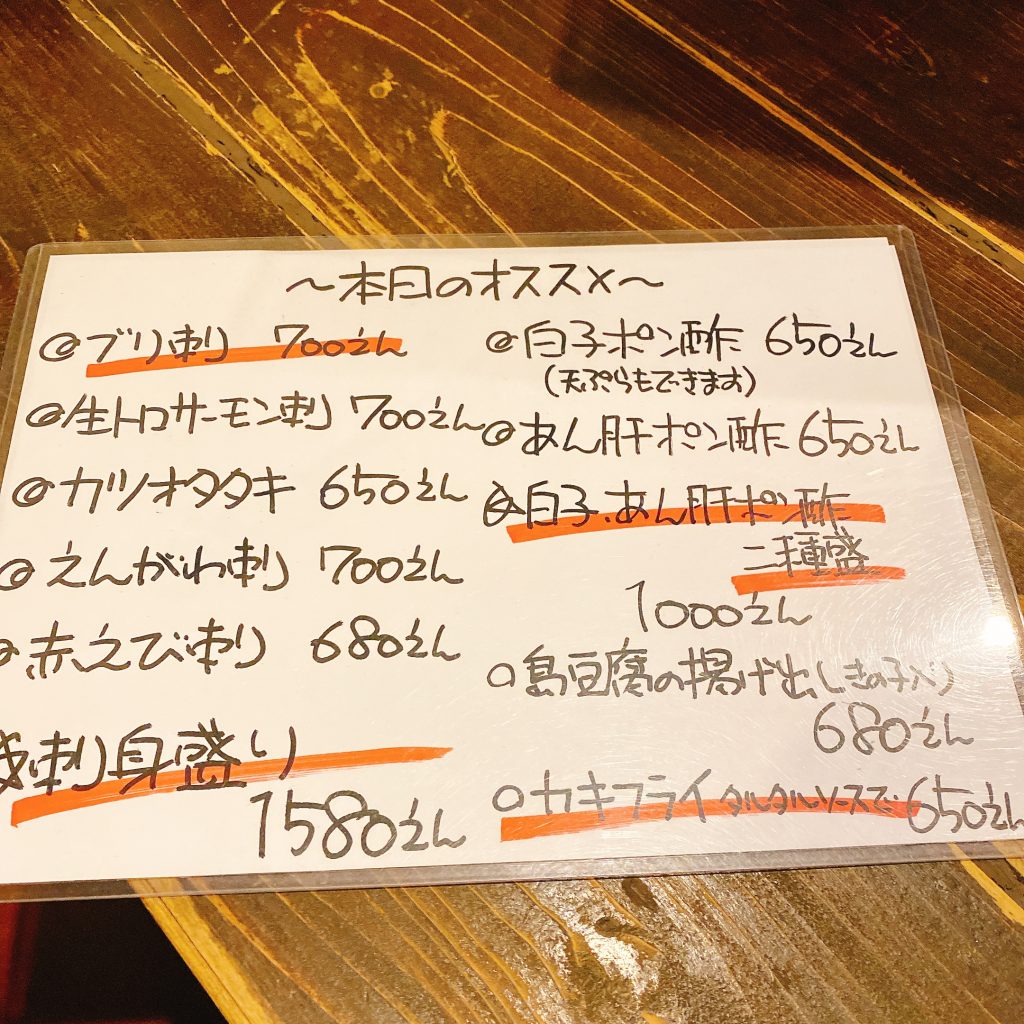 ～本日のオススメ～
◎ブリ刺 700えん
◎生トロサーモン刺 700えん
◎カツオタタキ 650えん
◎えんがわ刺 700えん
◎赤えび刺 680えん
☆刺身盛り
1580えん
◎白子ポン酢 650えん
(天ぷらもできます)
◎あん肝ポン酢 650えん
☆白子、あん肝ポン酢
二種盛
1000えん
○島豆腐の揚げ出し(きの子入り)
680えん
○カキフライタルタルソースで 650えん